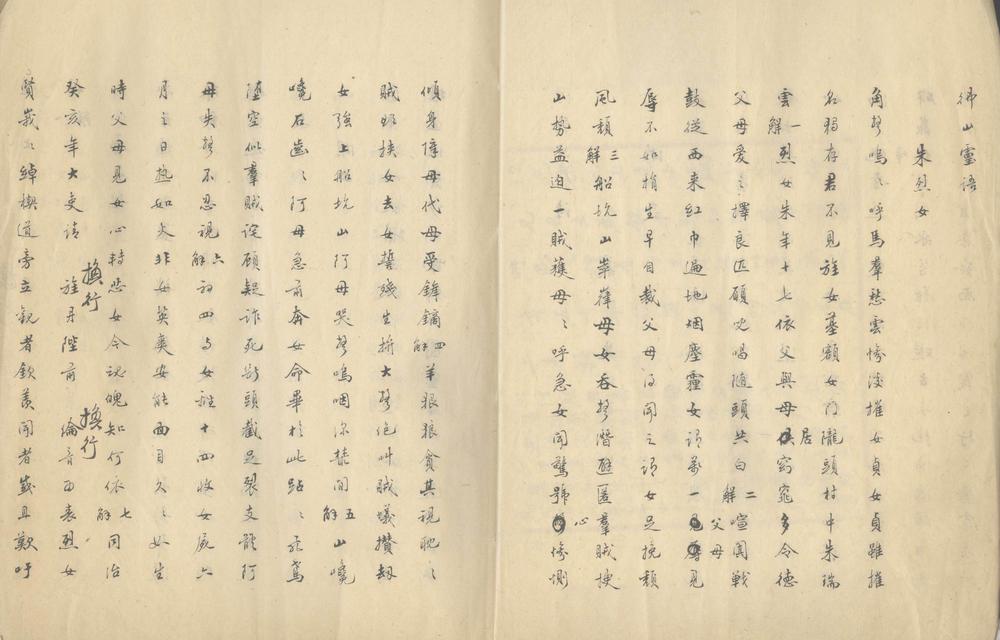 山靈語
朱烈女
角聲嗚〻呼馬羣愁雲慘淡摧女貞女貞雖摧
名猶存君不見旌女墓額女門隴頭村中朱瑞
雲一解烈女朱年十七依父與母居窈窕多令德
父母愛之擇良匹碩史唱隨頭共白二解喧闐戰
鼓從西来紅巾遍地烟塵霾女謂萬一父母見
辱不如捐生早自裁父母得聞之謂女足挽頹
風頹三解船坑山崒嵂母女吞聲潛避匿羣賊
山勢益迫一賊獲母〻呼急女聞驚號心慘惻
傾身障母代母受鋒鏑四解羊狠狼貪其視眈〻
賊奴挾女去女誓殘生拚大聲伹叫賊蟻攢刼
女強上船坑山阿母哭聲嗚咽深菻間五解山嶢
嶢石齒〻阿母急前奔女命畢於此跕〻飛鳶
墮空似羣賊詫顧疑詐死斮頭截足裂支體阿
母失聲不忍視六解初四与女離十四收女屍六
月之日热如火非女英爽安能面目久〻如生
時父母見女心轉悲女今魂魄知何依七解同治
癸亥年大吏請 換行 旌丹陛前 換行 綸音即表烈女
賢哉〻綽楔道旁立觀者欽羨聞者幾且歎吁